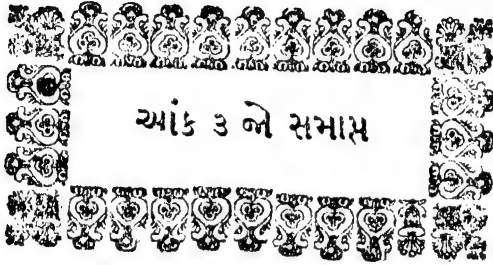 આંક ૩ જો સમાપ્ત